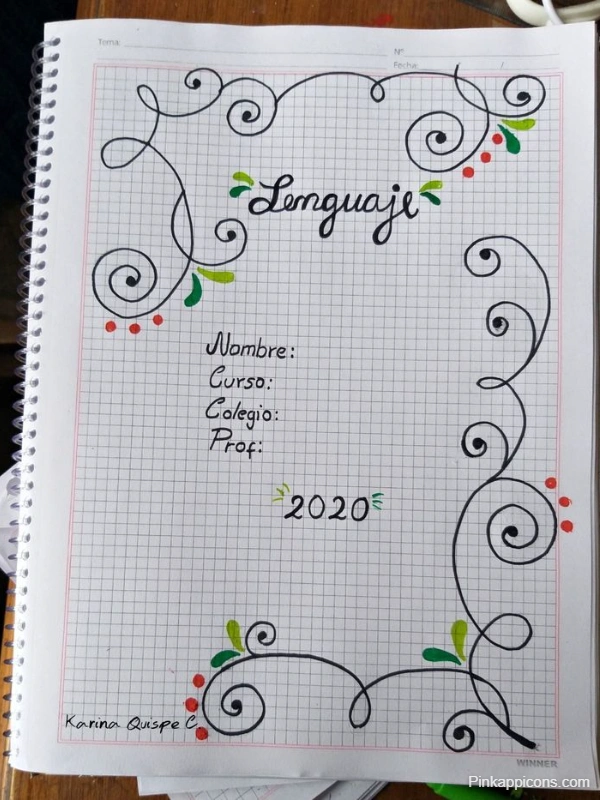 Tema:
Nº
Fecha: /
Lenguaje
Nombre:
Curso:
Colegio:
Prof:
2020
Karina Quispe C.
WINNER
Pinkappicons.com